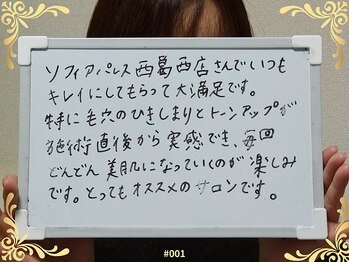 ソフィアパレス西葛西店さんでいつも
キレイにしてもらって大満足です。
特に毛穴のひきしまりとトーンアップが
施術直後から実感でき、毎回
どんどん美肌になっていくのが楽しみ
です。とってもオススメのサロンです。
#001